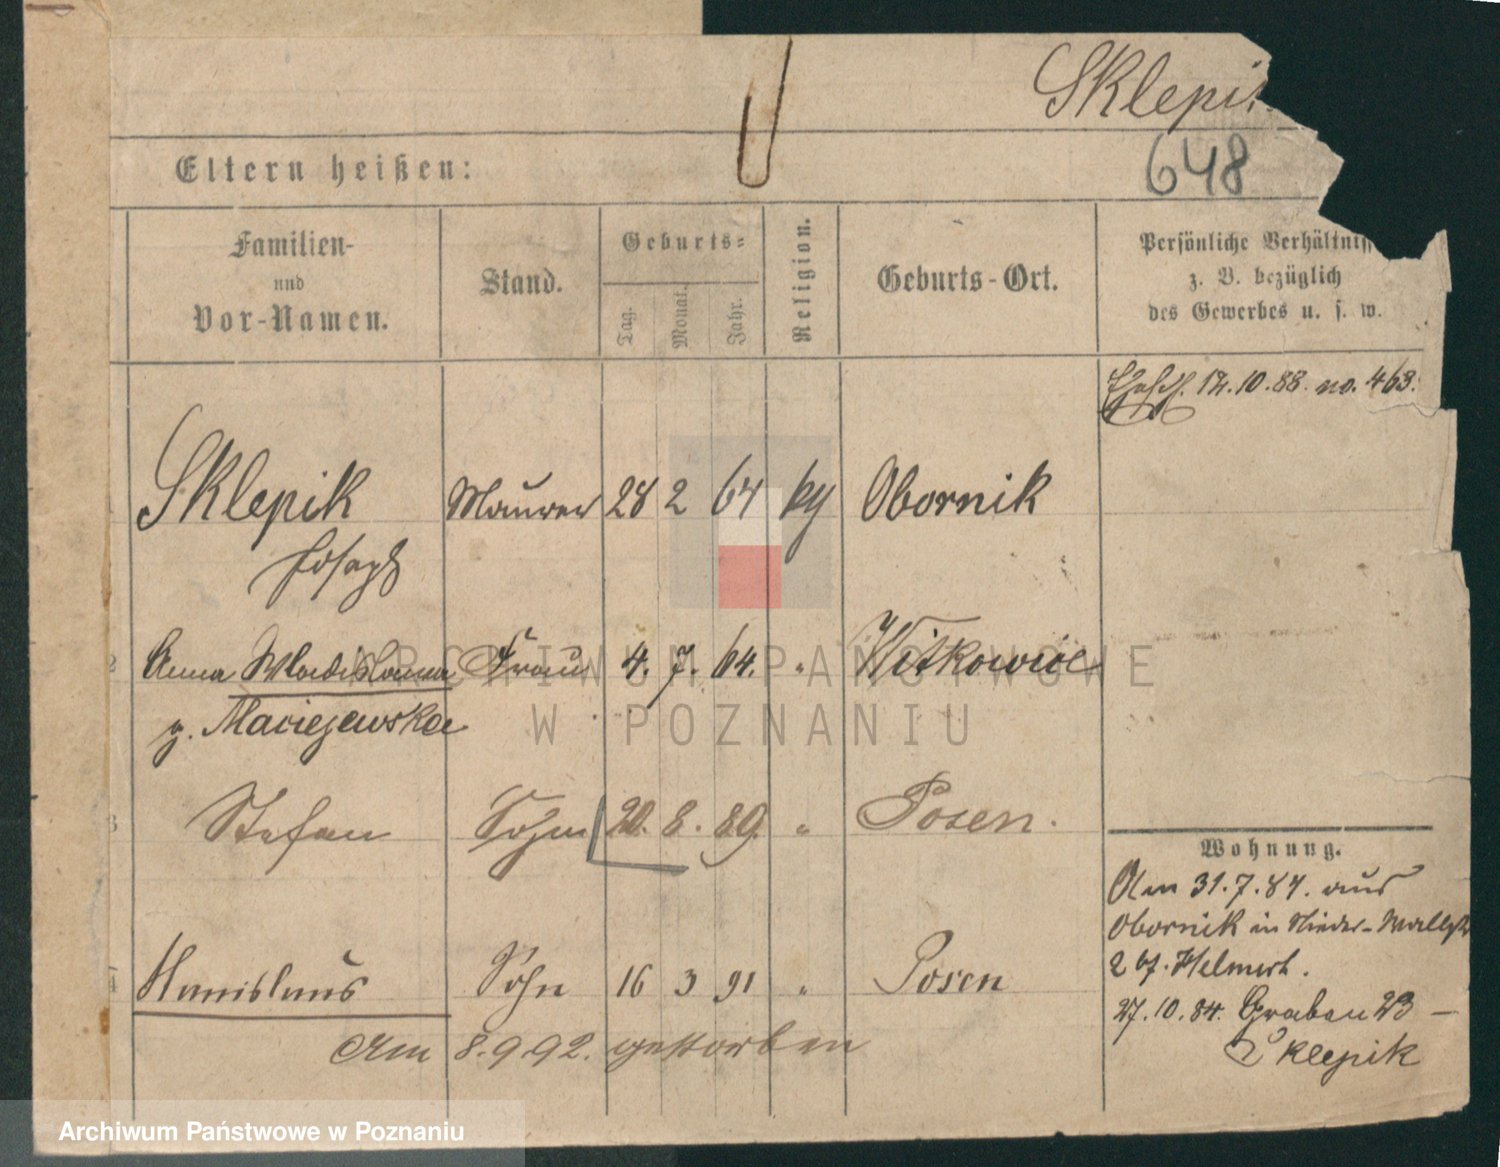 Sklepik
648
Eltern heißen:
Familien-
und
Vor-Namen.
Stand.
Geburts-
Tag.
Monat.
Jahr.
Religion.
Geburts-Ort.
Persönliche Verhältniss
z. B. bezüglich
des Gewerbes u. s. w.
12.10.88. no. 463.
Sklepik Maurer 28 2 64 Obornik
Joseph
2 Anna Wladislawa Frau 4. 7. 64. " Witkowice
g. Maciejewska
3 Stefan Sohn 20. 8. 89. " Posen.
4 Stanislaus Sohn 16 3 91 " Posen
Am 8.9.92. gestorben
Wohnung.
Am 31.7.84. aus
Obornik in Nieder-Wallstr
2 bf. Helmert.
27.10.84. Graben 23 —
Sklepik
ARCHIWUM PAŃSTWOWE
W POZNANIU
Archiwum Państwowe w Poznaniu